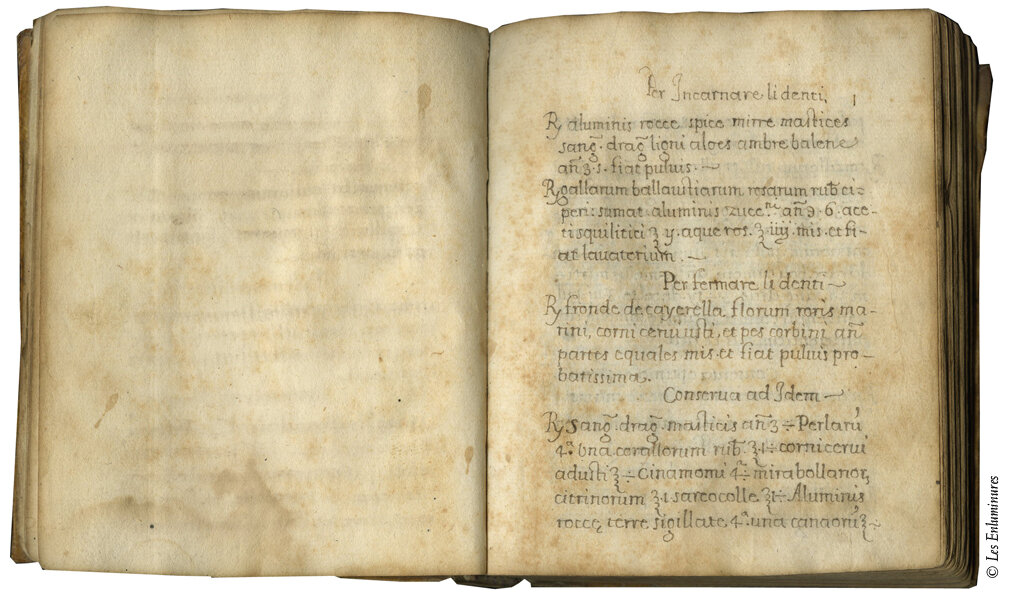 Per Incarnare li denti,
1
℞ aluminis rocce spice mirre mastices
sang̃. drag̃ ligni aloes ambre balene
añ ʒ. s. fiat puluis.~
℞ gallarum ballaustiarum rosarum rub̃ ci=
peri: sumat aluminis zucc. añ ℈. 6. ace-
ti squilitici ʒ y. aque ros. ʒ iiij. mis. et fi-
at lauaterium.~
Per fermare li denti~
℞ fronde de cayerella, florum roris ma-
rini, corni cerui usti, et pes corbini añ
partes equales mis. et fiat puluis pro-
batissima.
Conserua ad Idem~
℞ Sang̃. drag̃. masticis añ ʒ ÷ Perlarũ
4.ᵃ una corallorum rub̃. ʒ.1÷ corni cerui
adusti ʒ ÷ Cinamomi 4.ᵃ÷ mirabollanor,
citrinorum ʒ1 sarcocolle ʒ1÷ Aluminis
roccę, terre sigillate 4.ᵃ una
© Les Enluminures